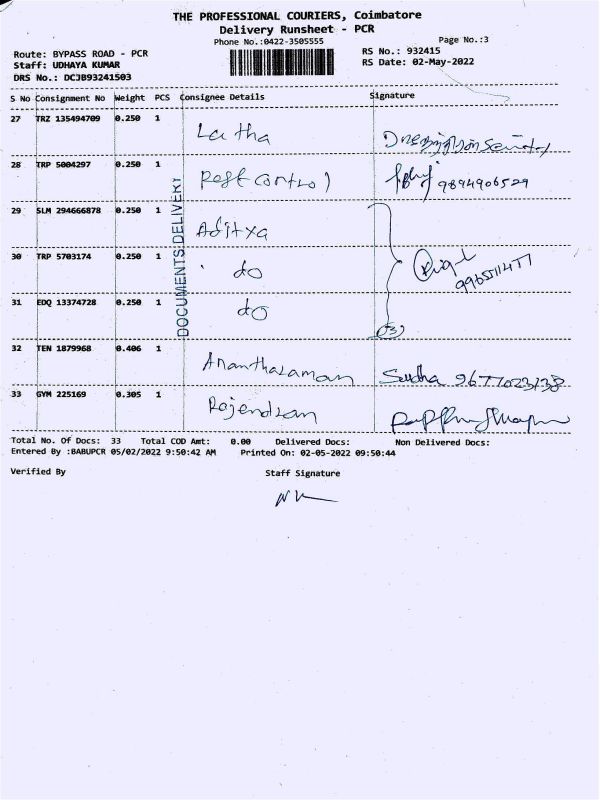 THE PROFESSIONAL COURIERS, Coimbatore
Delivery Runsheet - PCR
Phone No.:0422-3505555
Page No.:3
Route: BYPASS ROAD - PCR
RS No.: 932415
Staff: UDHAYA KUMAR
RS Date: 02-May-2022
DRS No.: DCJB93241503
S No Consignment No Weight PCS Consignee Details Signature
27 TRZ 135494709 0.250 1 Latha
28 TRP 5004297 0.250 1 Pest Control 9894906529
29 SLM 294666878 0.250 1 Aditya
30 TRP 5703174 0.250 1 do
31 EDQ 13374728 0.250 1 do
DOCUMENTS DELIVERY
32 TEN 1879968 0.406 1 Anantharaman Sudha
33 GYM 225169 0.305 1 Rajendran
Total No. Of Docs: 33 Total COD Amt: 0.00 Delivered Docs: Non Delivered Docs:
Entered By :BABUPCR 05/02/2022 9:50:42 AM Printed On: 02-05-2022 09:50:44
Verified By Staff Signature